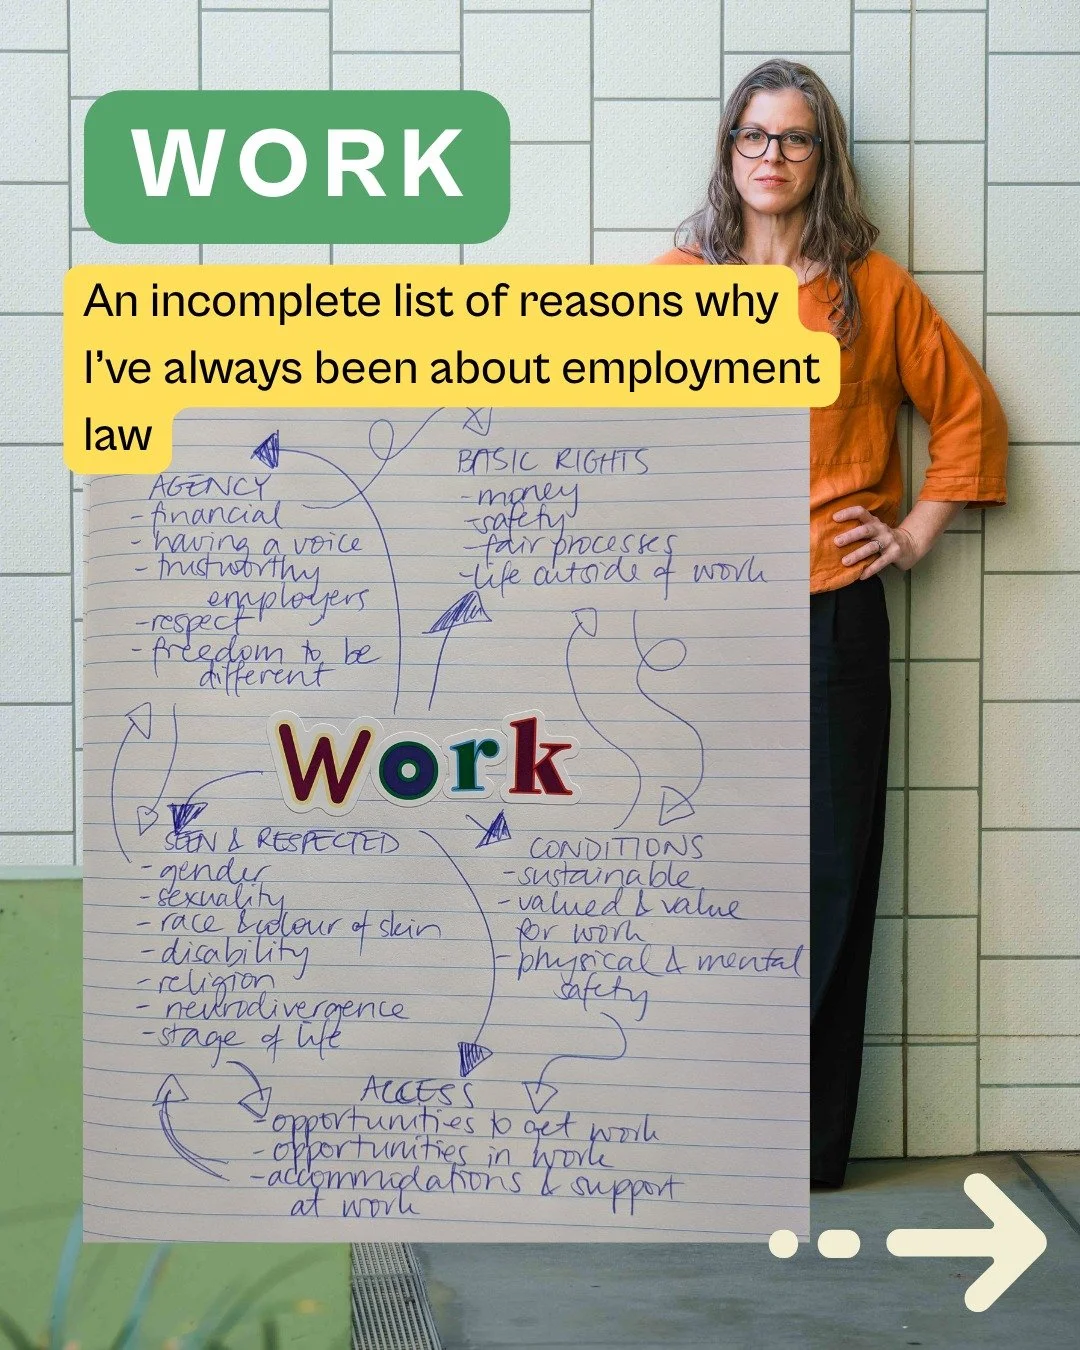 WORK
An incomplete list of reasons why
I've always been about employment
law
AGENCY
- financial
- having a voice
- trustworthy
employers
- respect
- freedom to be
different
BASIC RIGHTS
- money
- safety
- fair processes
- life outside of work
Work
SEEN & RESPECTED
- gender
- sexuality
- race & colour of skin
- disability
- religion
- neurodivergence
- stage of life
CONDITIONS
- sustainable
- valued & value
for work
- physical & mental
safety
ACCESS
- opportunities to get work
- opportunities in work
- accommodations & support
at work